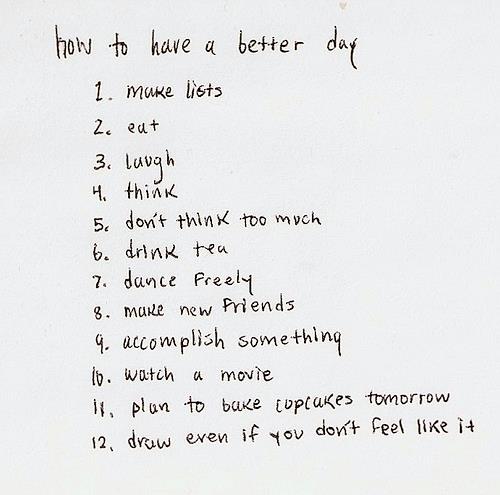 how to have a better day
1. make lists
2. eat
3. laugh
4. think
5. don't think too much
6. drink tea
7. dance freely
8. make new friends
9. accomplish something
10. watch a movie
11. plan to bake cupcakes tomorrow
12. draw even if you don't feel like it